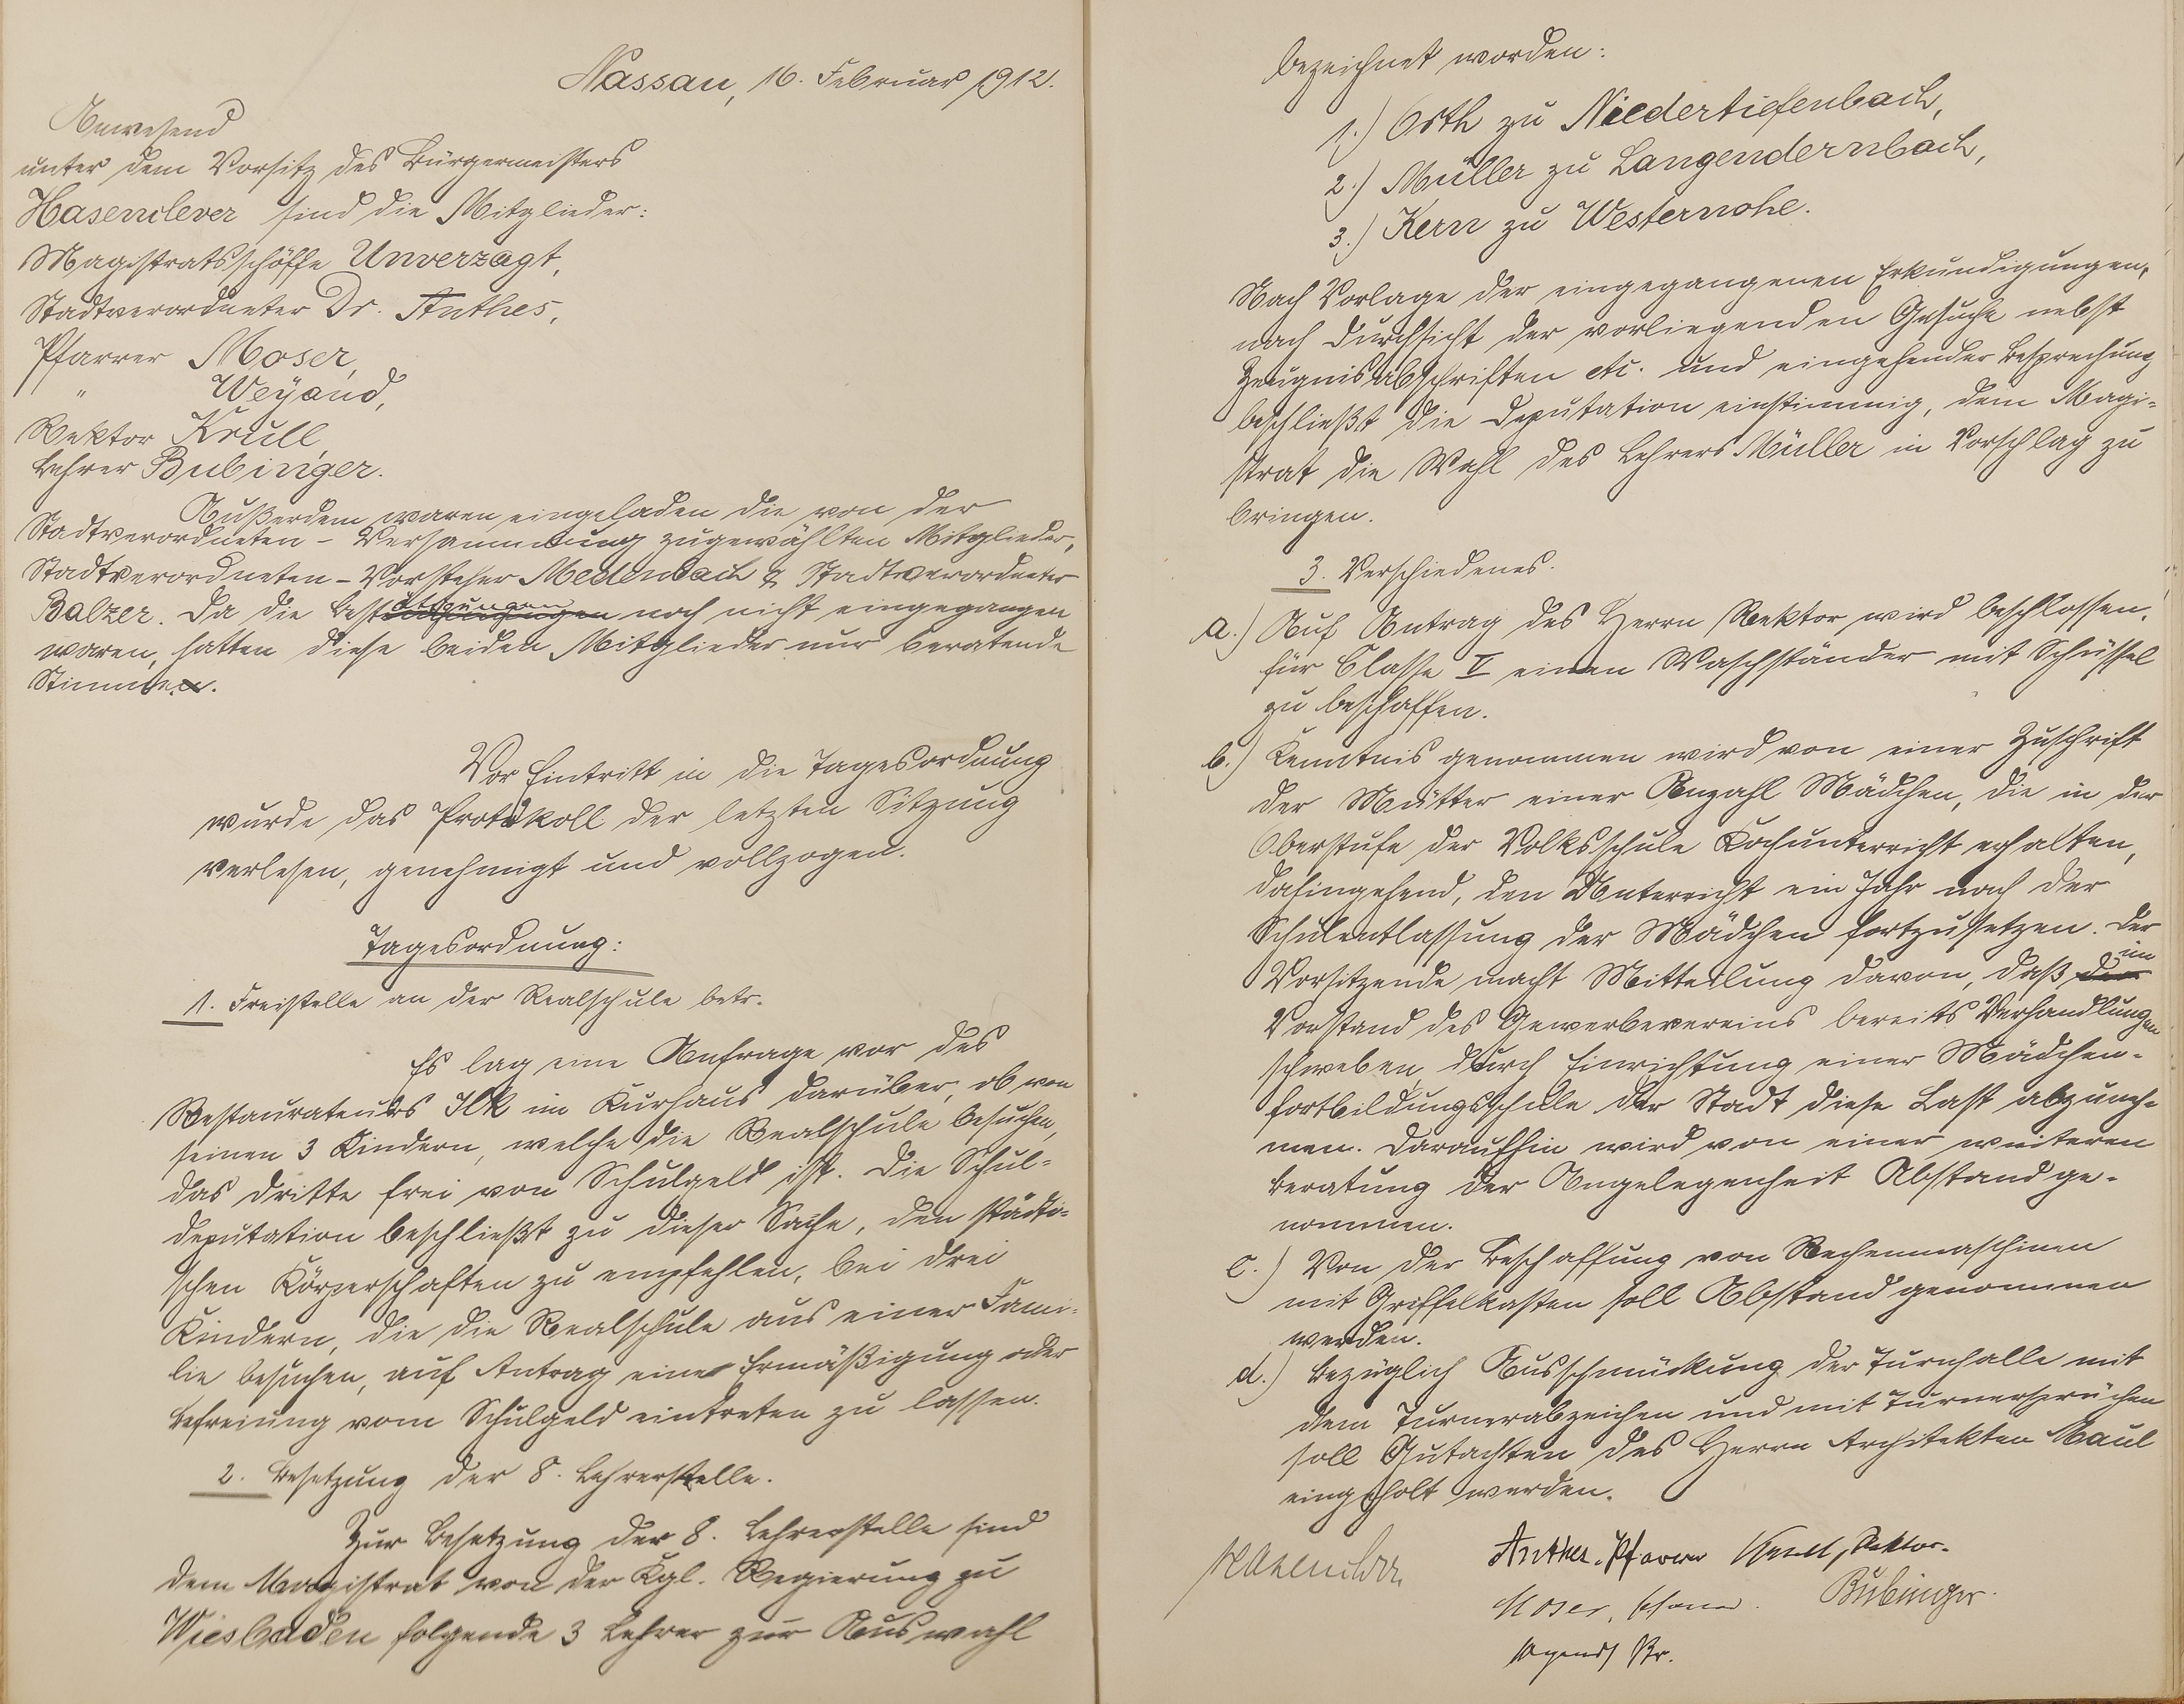 Nassau, 16. Februar 1912.
Anwesend
unter dem Vorsitz des Bürgermeisters
Hasenclever sind die Mitglieder:
Magistratsschöffe Unverzagt,
Stadtverordneter Dr. Anthes,
Pfarrer Moser,
" Weyand,
Rektor Krull,
Lehrer Bubinger.
Außerdem waren eingeladen die von der
Stadtverordneten-Versammlung zugewählten Mitglieder,
Stadtverordneten-Vorsteher Medenbach & Stadtverordneter
Balzer. Da die Bestätigungen noch nicht eingegangen
waren, hatten diese beiden Mitglieder nur beratende
Stimme.
Vor Eintritt in die Tagesordnung
wurde das Protokoll der letzten Sitzung
verlesen, genehmigt und vollzogen.
Tagesordnung:
1. Freistelle an der Realschule betr.
Es lag eine Anfrage vor des
Restaurateurs Ilk im Kurhaus darüber, ob von
seinen 3 Kindern, welche die Realschule besuchen,
das dritte frei von Schulgeld ist. Die Schul-
deputation beschließt zu dieser Sache, den städti-
schen Körperschaften zu empfehlen, bei drei
Kindern, die die Realschule aus einer Fami-
lie besuchen, auf Antrag eine Ermäßigung oder
Befreiung vom Schulgeld eintreten zu lassen.
2. Besetzung der 8. Lehrerstelle.
Zur Besetzung der 8. Lehrerstelle sind
dem Magistrat von der Kgl. Regierung zu
Wiesbaden folgende 3 Lehrer zur Auswahl
bezeichnet worden:
1.) Orth zu Niedertiefenbach,
2.) Müller zu Langendernbach,
3.) Kern zu Westernohe.
Nach Vorlage der eingegangenen Erkundigungen,
nach Durchsicht der vorliegenden Gesuche nebst
Zeugnisabschriften etc. und eingehender Besprechung
beschließt die Deputation einstimmig, dem Magi-
strat die Wahl des Lehrers Müller in Vorschlag zu
bringen.
3. Verschiedenes.
a.) Auf Antrag des Herrn Rektor wird beschlossen,
für Classe V einen Waschständer mit Schüssel
zu beschaffen.
b.) Kenntnis genommen wird von einer Zuschrift
der Mütter einer Anzahl Mädchen, die in der
Oberstufe der Volksschule Kochunterricht erhalten,
dahingehend, den Unterricht ein Jahr nach der
Schulentlassung der Mädchen fortzusetzen. Der
Vorsitzende macht Mitteilung davon, daß im
Vorstand des Gewerbevereins bereits Verhandlungen
schweben, durch Einrichtung einer Mädchen-
fortbildungsschule der Stadt diese Last abzuneh-
men. Daraufhin wird von einer weiteren
Beratung der Angelegenheit Abstand ge-
nommen.
c.) Von der Beschaffung von Rechenmaschinen
mit Griffelkasten soll Abstand genommen
werden.
d.) Bezüglich Ausschmückung der Turnhalle mit
dem Turnerabzeichen und mit Turnersprüchen
soll Gutachten des Herrn Architekten Maul
eingeholt werden.
Hasenclever. Anthes. Pfarrer Krull, Rektor.
Moser, Pfarrer. Bubinger.
Weyand, Pfr.